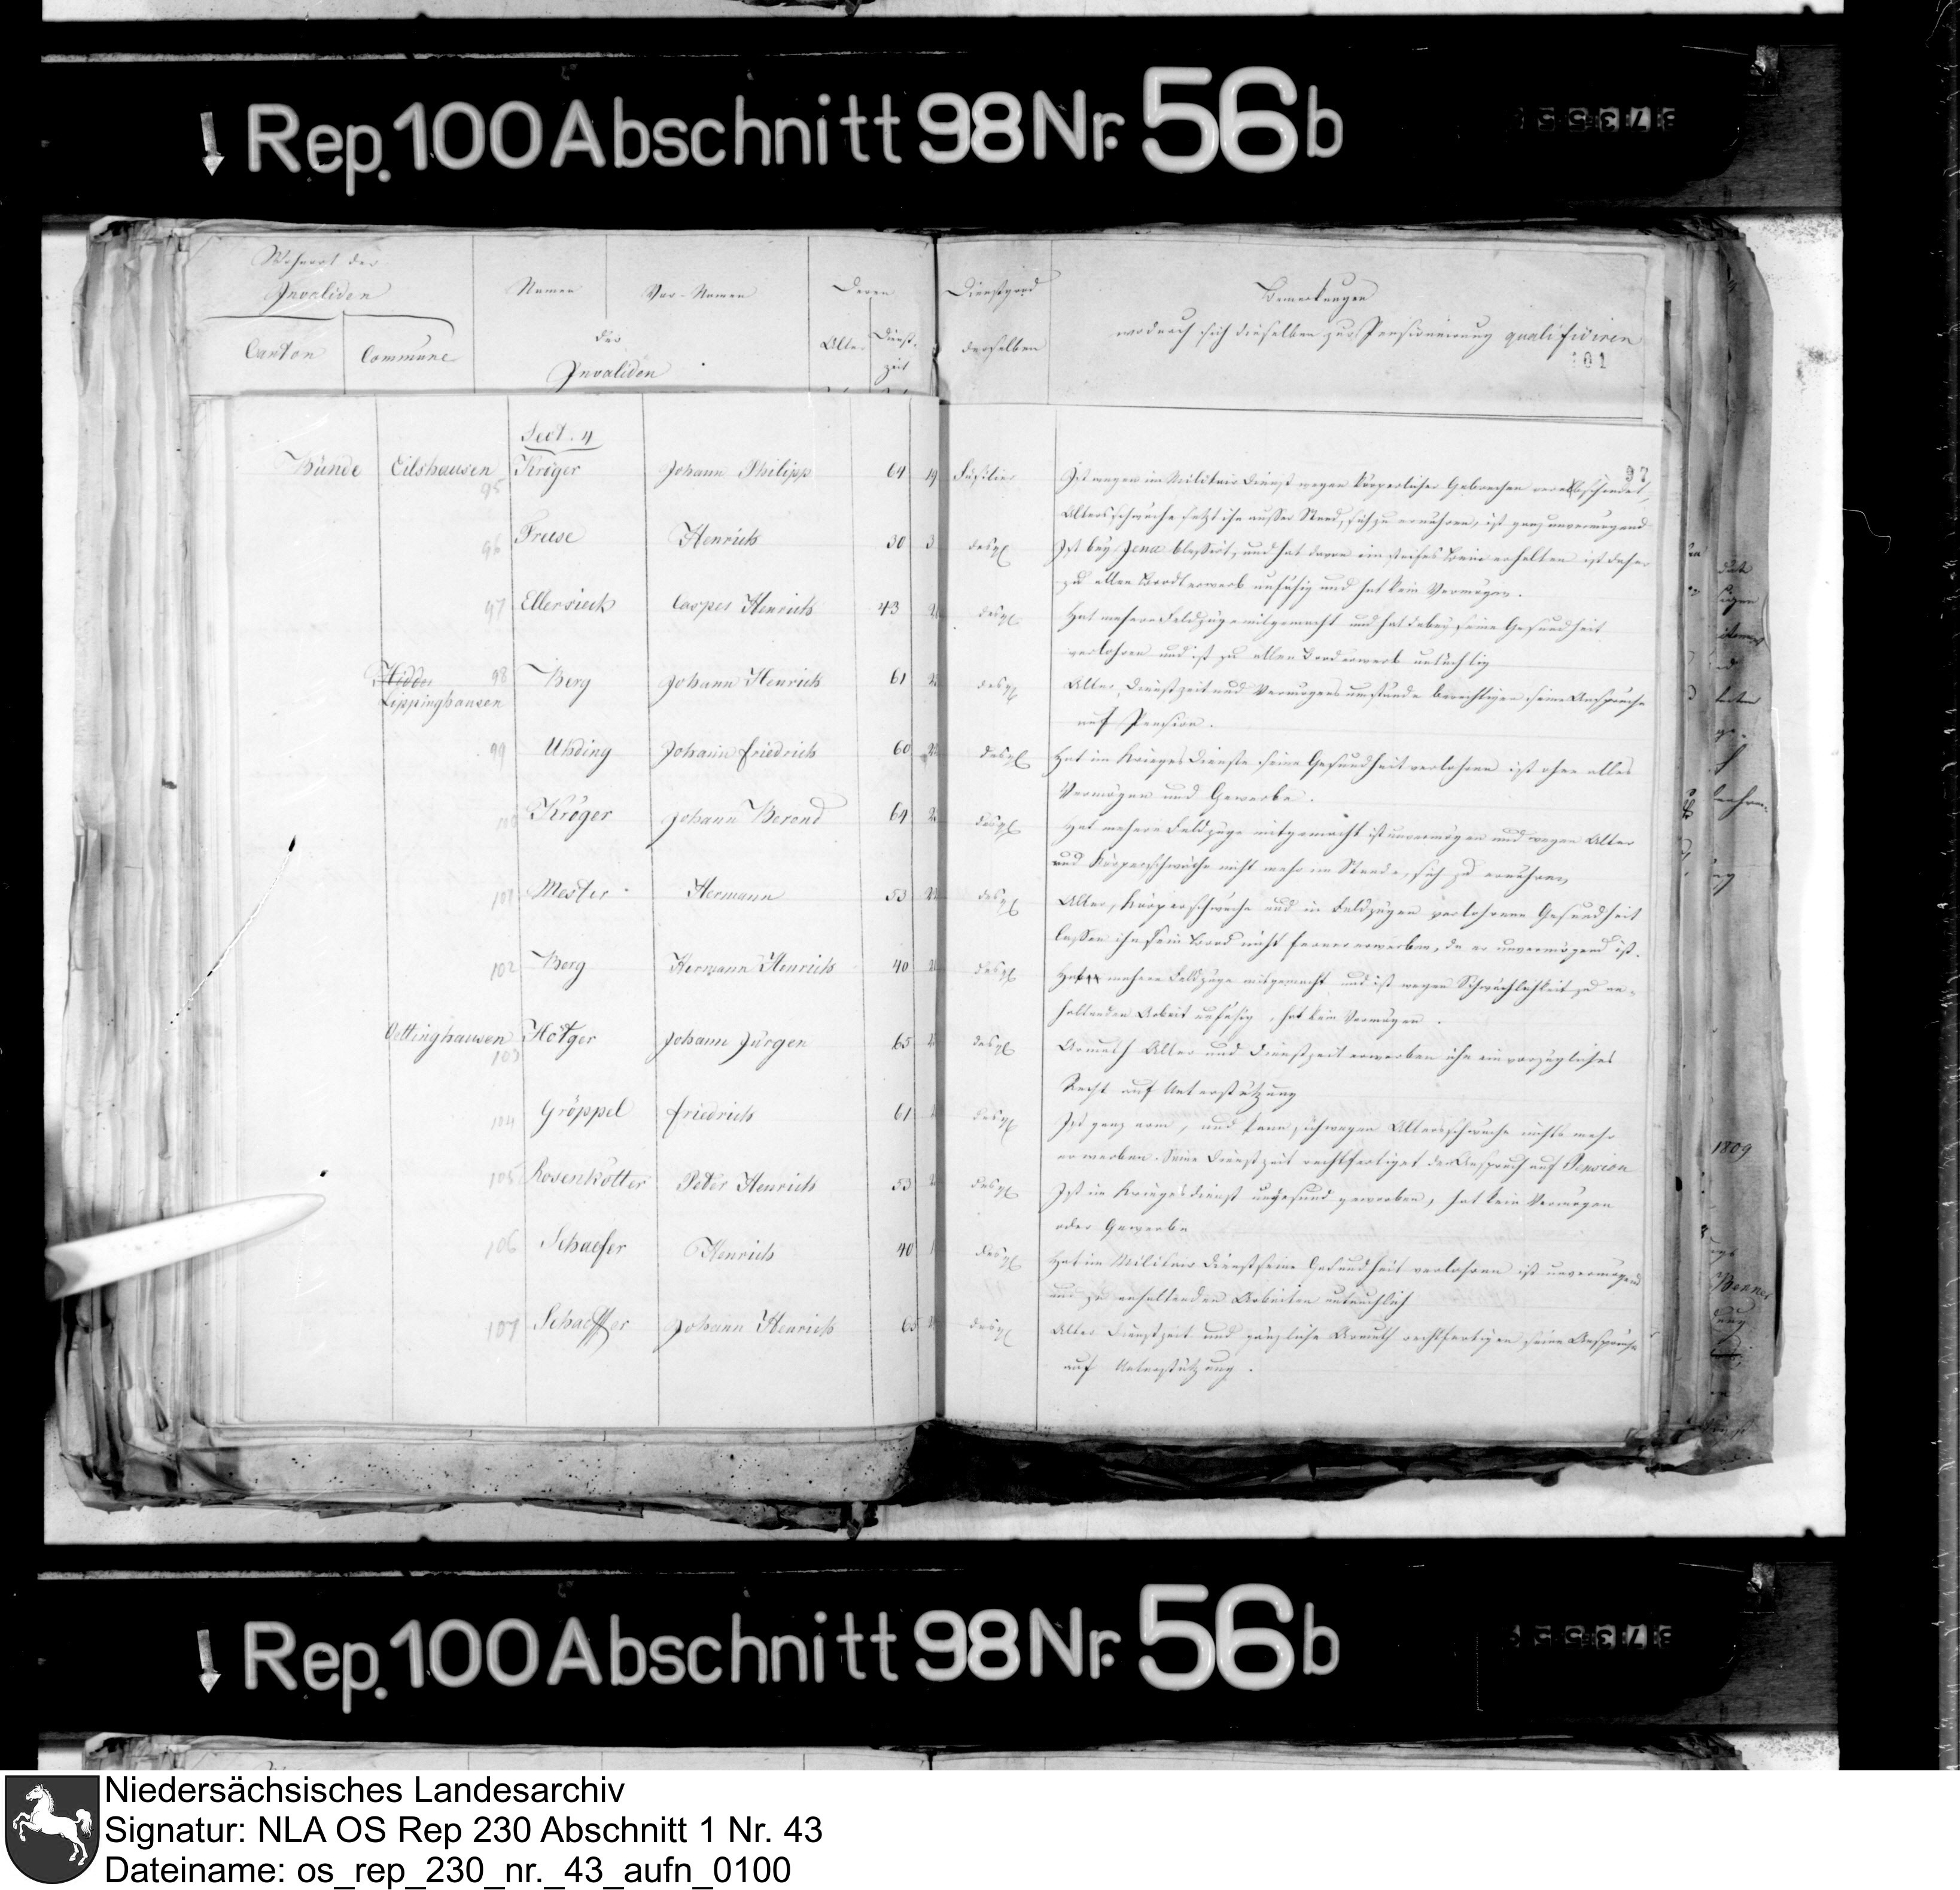 Rep. 100 Abschnitt 98 Nr. 56b
Wohnort der
Invaliden
Canton Commune
Namen Vor-Namen
der
Invaliden
Deren
Alter Dienst-
zeit
Dienstgrad
derselben
Bemerkungen
wodurch sich dieselben zur Pensionirung qualificiren
101
Sect. 4
97
Bünde Eilshausen 95 Kröger Johann Philipp 64 19 Füsilier Ist wegen im Militair Dienst wegen körperlicher Gebrechen verabschiedet,
Altersschwäche setzt ihn ausser Stand, sich zu ernähren, ist ganz unvermögend
96 Freese Henrich 30 3 desgl Ist bey Jena blessirt, und hat davon ein steifes Bein erhalten ist daher
zu allem Brodterwerb unfähig und hat kein Vermögen.
97 Ellersieck Casper Henrich 43 desgl Hat mehere Feldzüge mitgemacht und hat dabey seine Gesundheit
verlohren und ist zu allem Broderwerb untüchtig
Hidde
Lippinghausen 98 Berg Johann Henrich 61 desgl Alter, Dienstzeit und Vermögensumstände berechtigen seine Ansprüche
auf Pension.
99 Uhding Johann Friedrich 60 desgl Hat im Krieges Dienste seine Gesundheit verlohren ist ohne alles
Vermögen und Gewerbe.
100 Kröger Johann Berend 64 desgl Hat mehere Feldzüge mitgemacht ist unvermögen und wegen Alter
und Körperschwäche nicht mehr im Stande, sich zu ernähren
101 Mester Hermann 53 desgl Alter, Körperschwäche und in Feldzügen verlohrene Gesundheit
lassen ihn sein Brod nicht ferner erwerben, da er unvermögend ist.
102 Berg Hermann Henrich 40 desgl Hat mehere Feldzüge mitgemacht und ist wegen Schwächlichkeit zu an-
haltenden Arbeit unfähig, hat kein Vermögen.
Oettinghausen 103 Hötger Johann Jürgen 65 desgl Armuth Alter und Dienstzeit erwerben ihm ein vorzügliches
Recht auf Unterstützung
104 Gröppel Friedrich 61 desgl Ist ganz arm, und kann sich wegen Altersschwäche nichts mehr
erwerben. Seine Dienstzeit rechtfertiget den Anspruch auf Pension
105 Rosenkötter Peter Henrich 53 desgl Ist im Kriegesdienst ungesund geworden, hat kein Vermögen
oder Gewerbe
106 Schaefer Henrich 40 desgl Hat im Militair Dienst seine Gesundheit verlohren ist unvermögend
und zu anhaltenden Arbeiten untauglich
107 Schaeffer Johann Henrich 65 desgl Alter Dienstzeit und gänzliche Armuth rechtfertigen seine Ansprüche
auf Unterstützung.
1809
Rep. 100 Abschnitt 98 Nr. 56b
Niedersächsisches Landesarchiv
Signatur: NLA OS Rep 230 Abschnitt 1 Nr. 43
Dateiname: os_rep_230_nr._43_aufn_0100